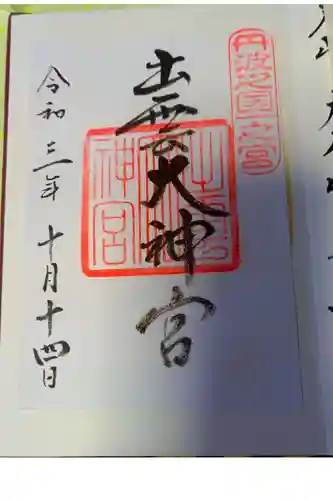 丹波之國一之宮
出雲大神宮
出雲大神宮
令和三年 十月十四日